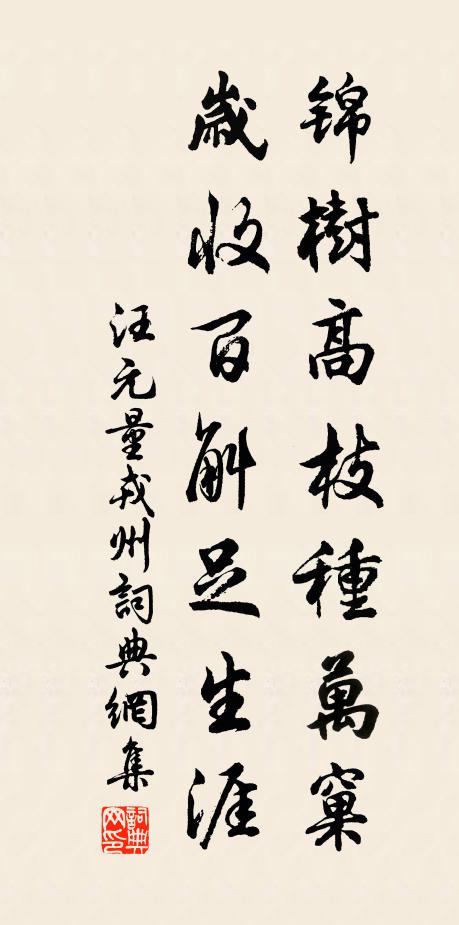 錦樹高枝種萬窠
歲收百斛足生涯
汪元量戎州詞典網集
詞典網印